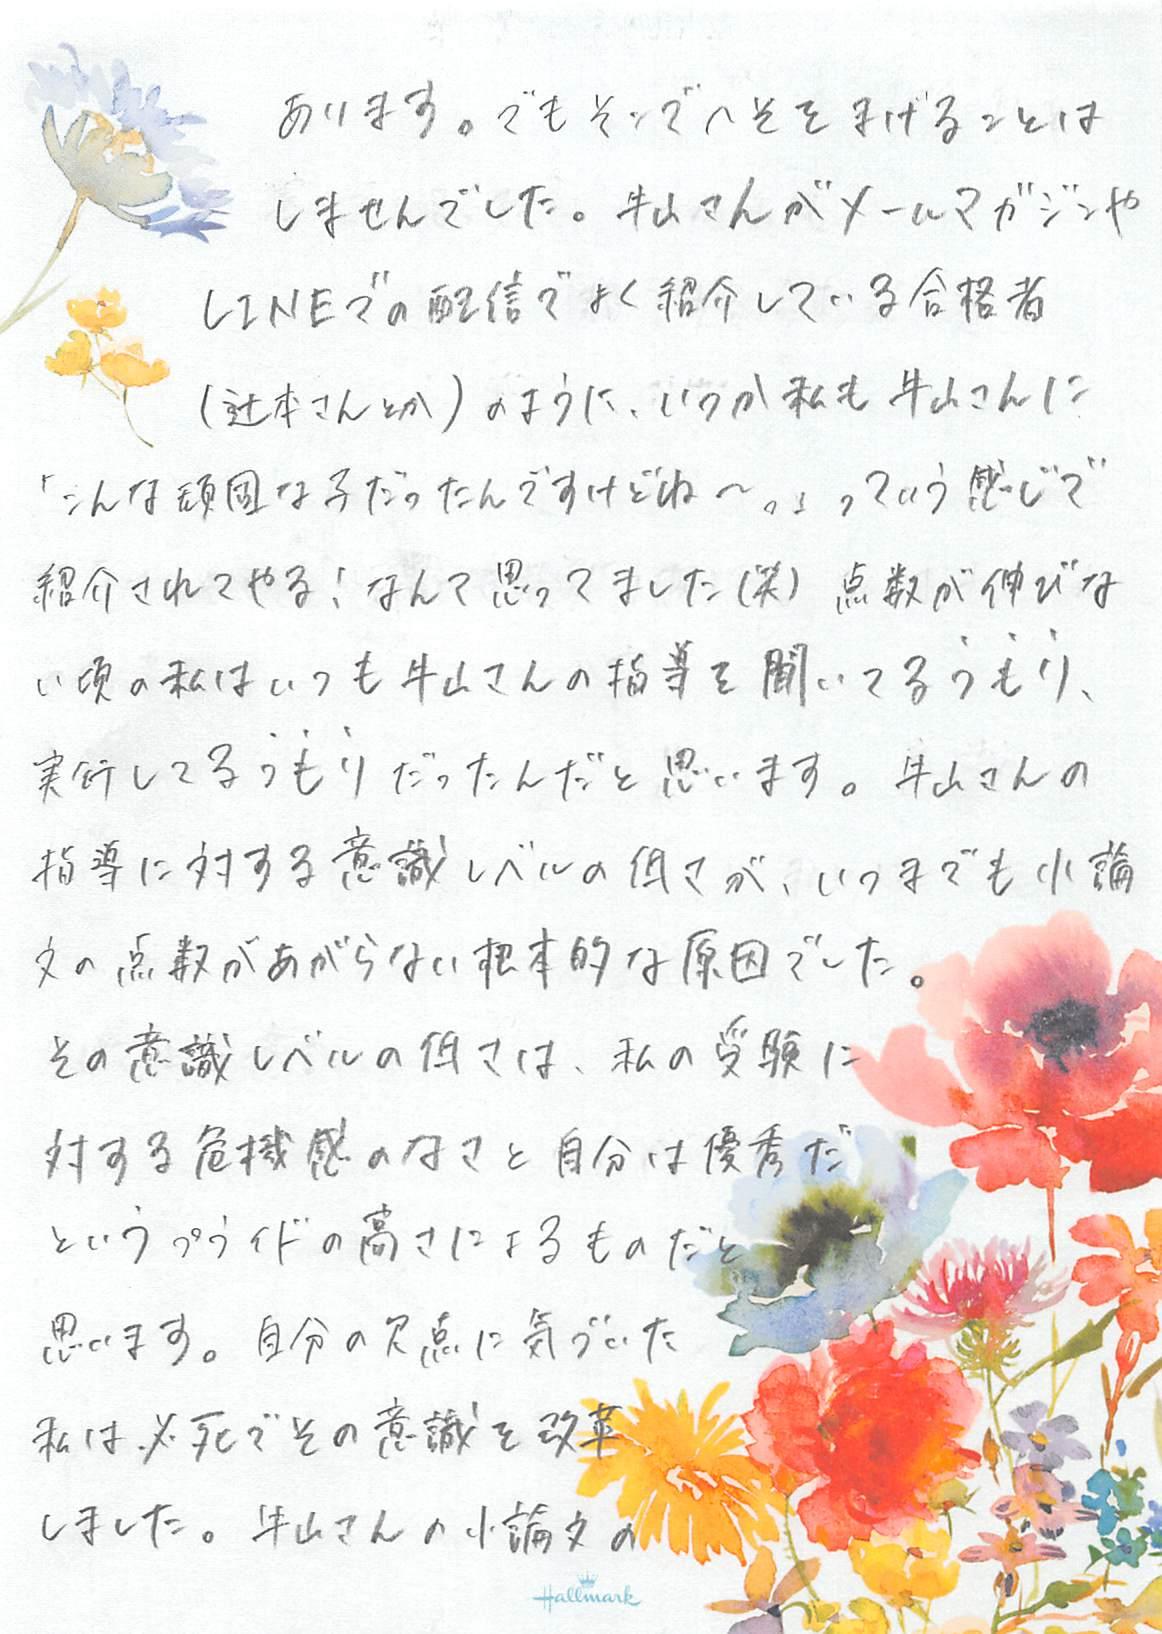 あります。でもそこでへそをまげることは
しませんでした。牛山さんがメールマガジンや
LINEでの配信でよく紹介している合格者
(辻本さんとか)のように、いつか私も牛山さんに
「こんな頑固な子だったんですけどね〜。」っていう感じで
紹介されてやる!なんて思ってました(笑)点数が伸びな
い頃の私はいつも牛山さんの指導を聞いてるつもり、
実行してるつもりだったんだと思います。牛山さんの
指導に対する意識レベルの低さが、いつまでも小論
文の点数があがらない根本的な原因でした。
その意識レベルの低さは、私の受験に
対する危機感のなさと自分は優秀だ
というプライドの高さによるものだと
思います。自分の欠点に気づいた
私は必死でその意識を改革
しました。牛山さんの小論文の
Hallmark